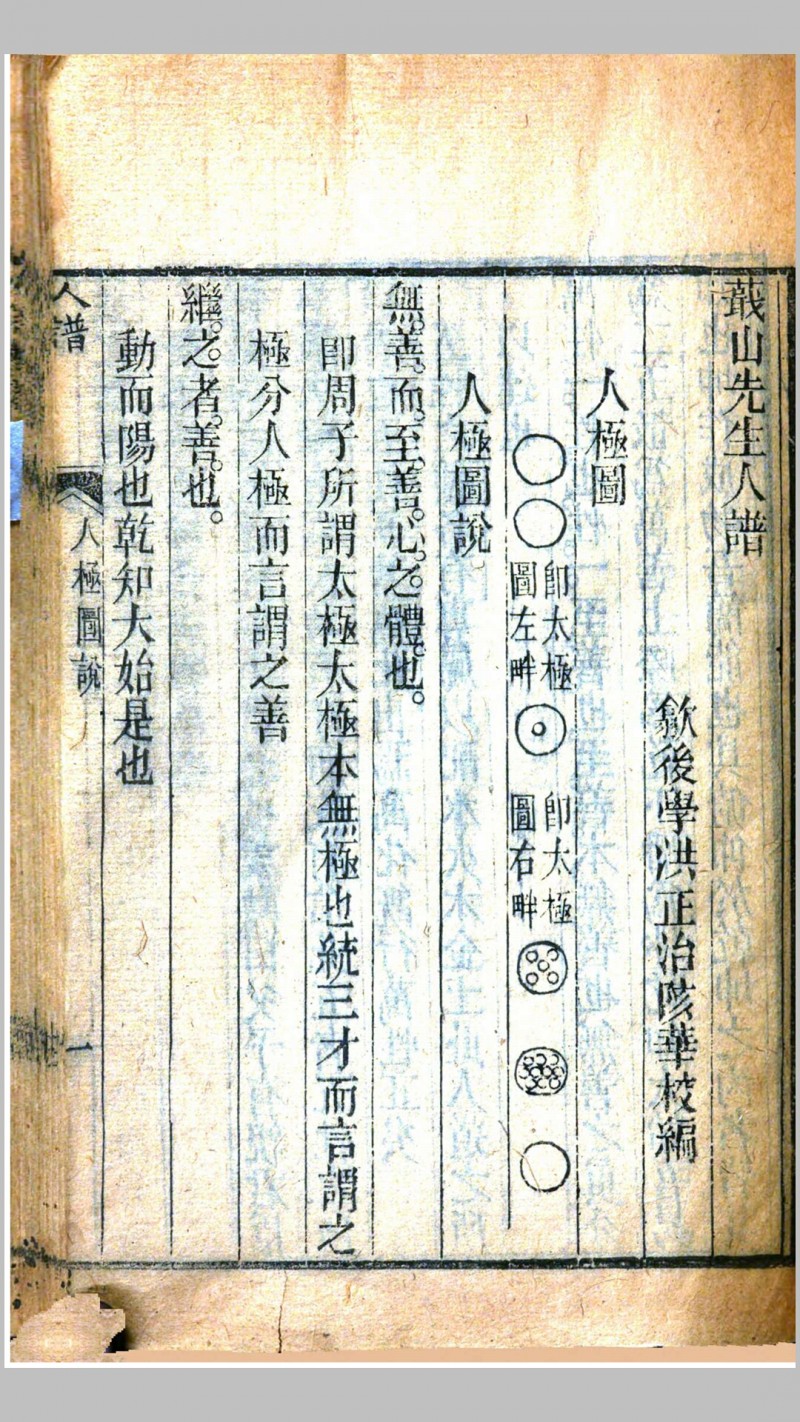 蕺山先生人譜
歙後學洪正治陔華校編
人極圖
即太極
圖左畔
即太極
圖右畔
人極圖說
無善而至善心之體也。
即周子所謂太極太極本無極也統三才而言謂之
極分人極而言謂之善
繼之者善也。
動而陽也乾知大始是也
人譜
人極圖說
一